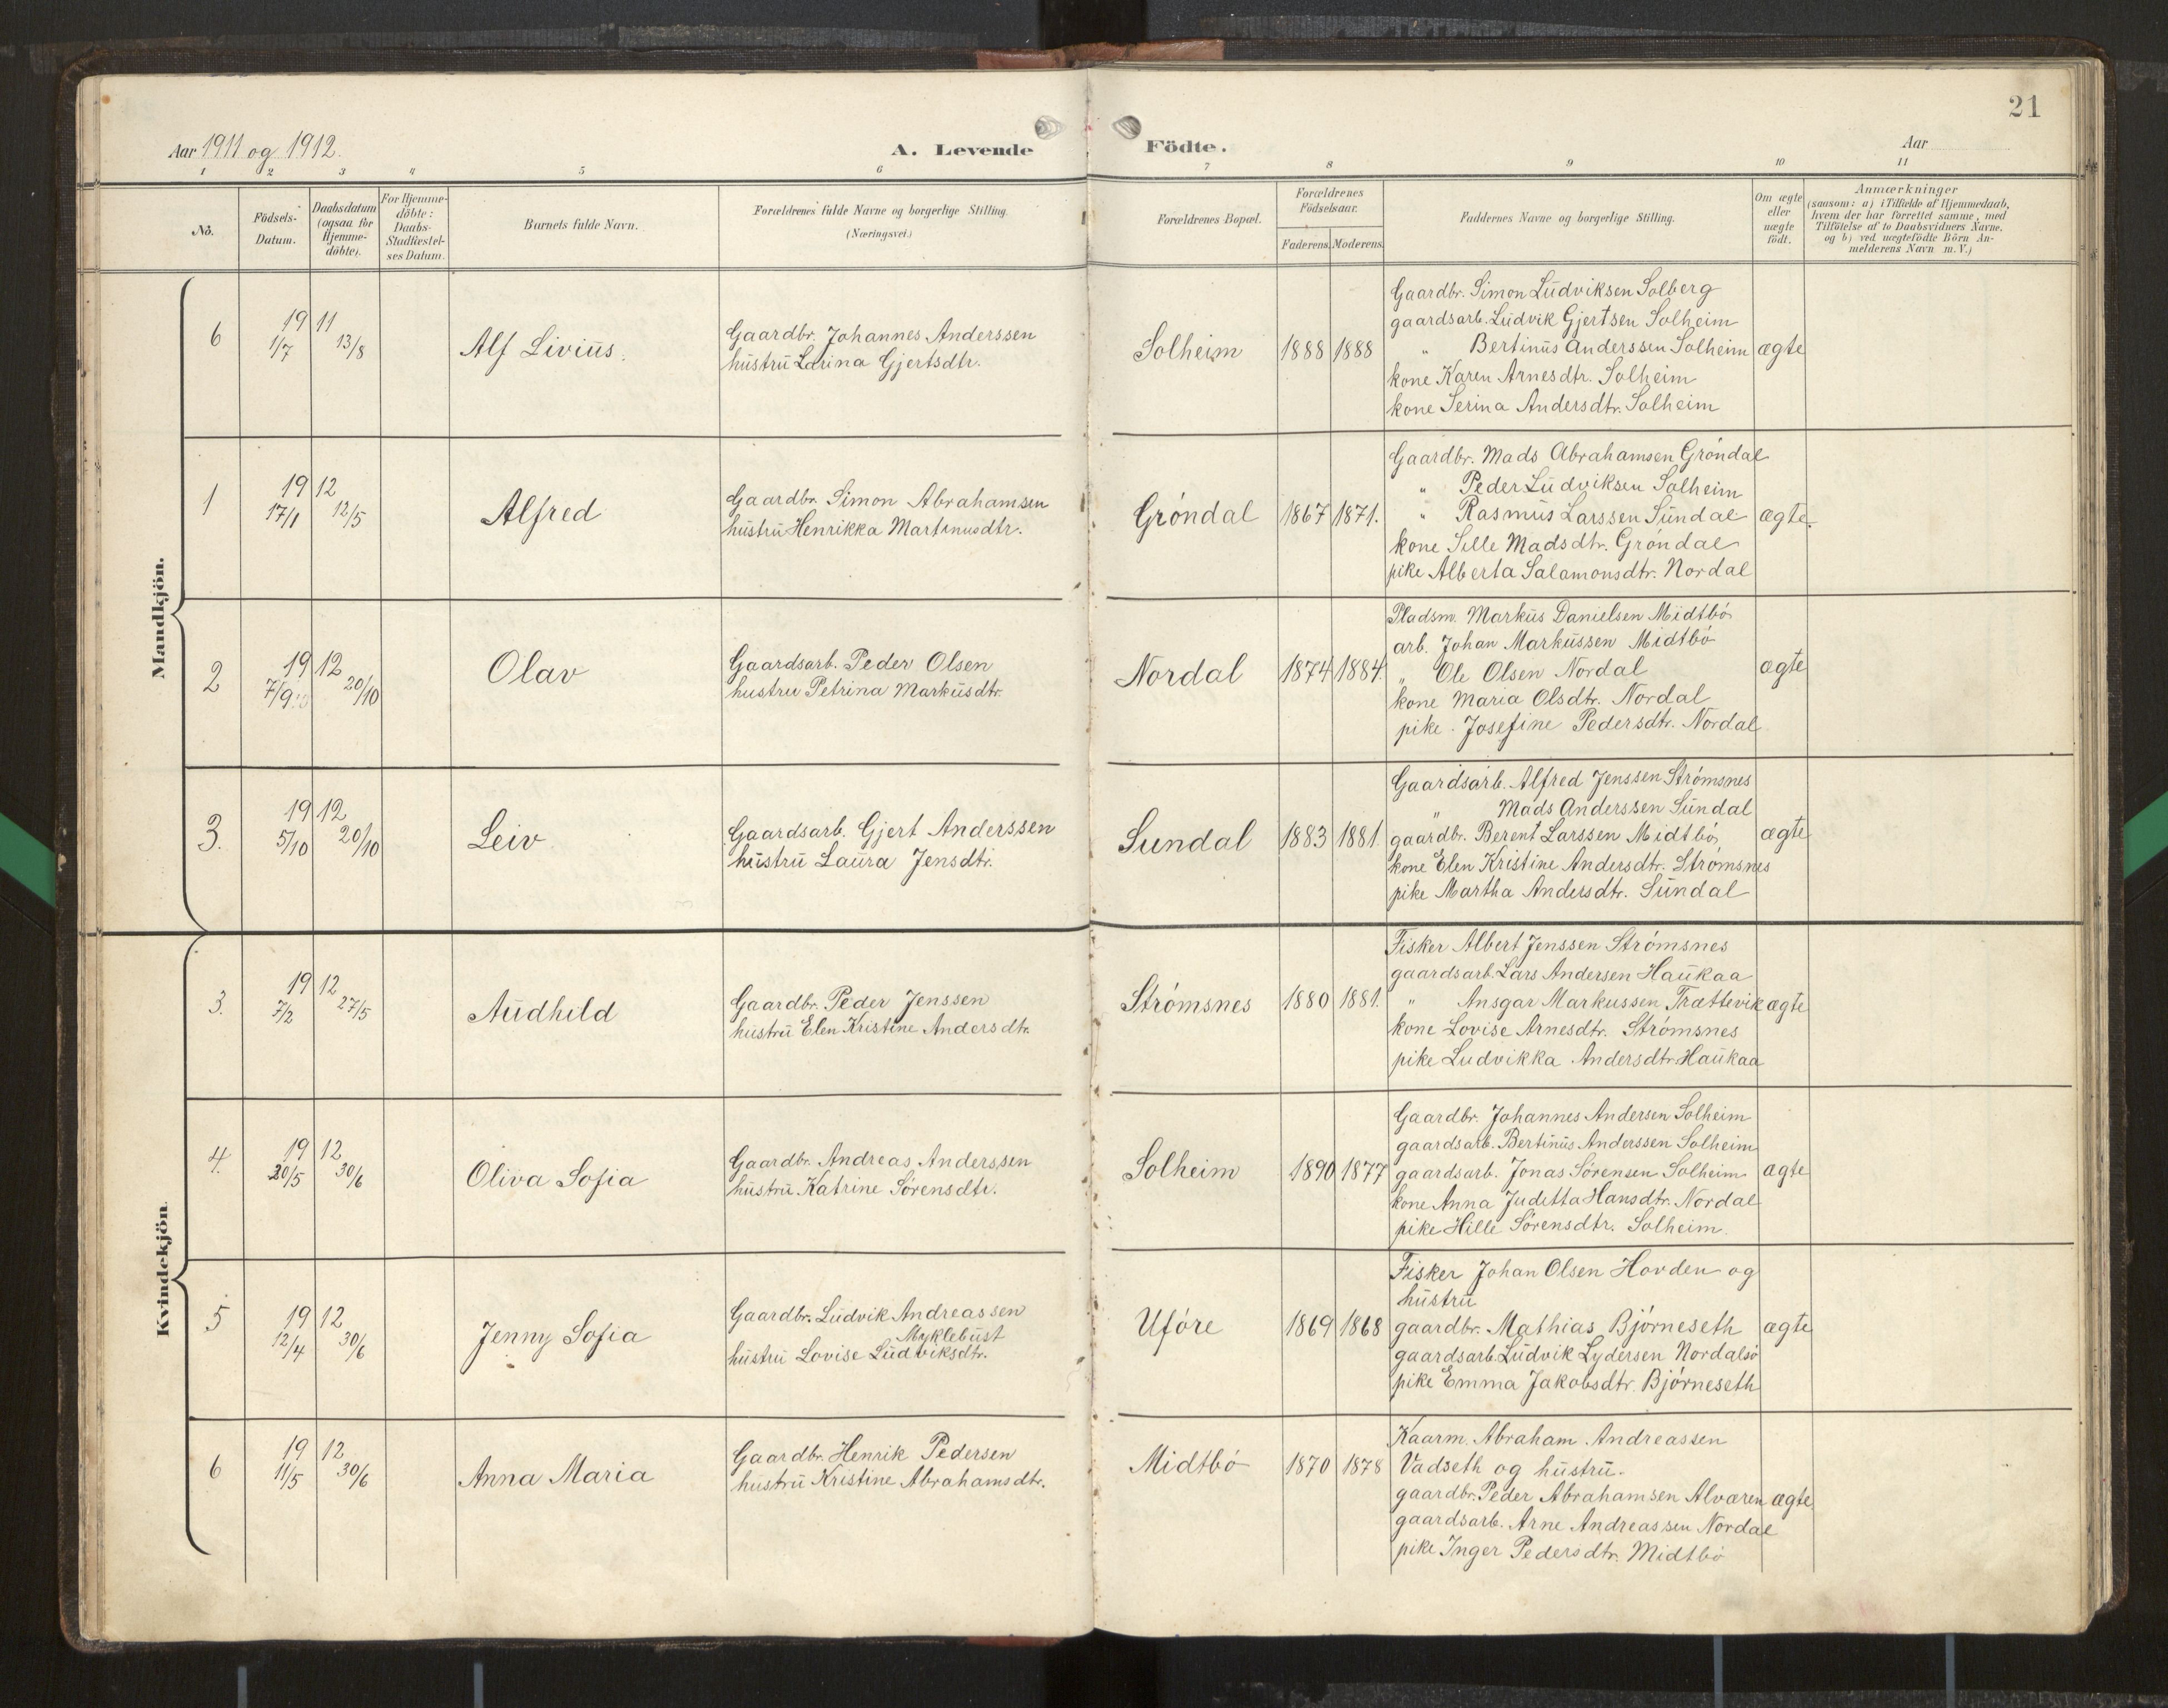 21
Aar 1911 og 1912.
A. Levende Födte.
Aar
1 2 3 4 5 6 7 8 9 10 11
No.
Födsels-Datum.
Daabsdatum (ogsaa for Hjemme-döbte).
For Hjemme-döbte: Daabs-Stadfæstel-ses Datum.
Barnets fulde Navn.
Forældrenes fulde Navne og borgerlige Stilling.
(Næringsvei.)
Forældrenes Bopæl.
Forældrenes Födselsaar.
Faderens. Moderens.
Faddernes Navne og borgerlige Stilling.
Om ægte eller uægte födt.
Anmærkninger
(saasom: a) i Tilfælde af Hjemmedaab,
hvem der har forrettet samme, med
Tilföielse af to Daabsvidners Navne.
og b) ved uægtefödte Börn An-
melderens Navn m. V.)
Mandkjön.
6
19 11
1/7 13/8
Alf Livius.
Gaardbr. Johannes Anderssen
hustru Larina Gjertsdtr.
Solheim
1888 1888
Gaardbr. Simon Ludviksen Solberg
gaardsarb. Ludvik Gjertsen Solheim
" Bertinus Anderssen Solheim
kone Karen Arnesdtr. Solheim
kone Serina Andersdtr. Solheim
ægte
1
19 12
17/1 12/5
Alfred
Gaardbr. Simon Abrahamsen
hustru Henrikka Martinusdtr.
Gróndal
1867 1871.
Gaardbr. Mads Abrahamsen Gróndal
" Peder Ludviksen Solheim
" Rasmus Larssen Sundal
kone Sille Madsdtr. Gróndal
pike Alberta Salamonsdtr. Nordal
ægte.
2
19 12
7/9 20/10
Olav
Gaardsarb. Peder Olsen
hustru Petrina Markusdtr.
Nordal
1874 1884.
Pladsm. Markus Danielsen Midtbó
arb. Johan Markussen Midtbó
" Ole Olsen Nordal
kone Maria Olsdtr. Nordal
pike. Josefine Pedersdtr. Nordal
ægte
3.
19 12
5/10 20/10
Leiv
Gaardsarb. Gjert Anderssen
hustru Laura Jensdtr.
Sundal
1883 1881.
Gaardsarb. Alfred Jenssen Strómsnes
" Mads Anderssen Sundal
gaardbr. Berent Larssen Midtbó
kone Elen Kristine Andersdtr. Strómsnes
pike Martha Andersdtr. Sundal
ægte
Kvindekjön.
3.
19 12
7/2 27/5
Audhild
Gaardbr. Peder Jenssen
hustru Elen Kristine Andersdtr.
Strómsnes
1880 1881.
Fisker Albert Jenssen Strómsnes
gaardsarb. Lars Andersen Haukaa
" Ansgar Markussen Trættevik
kone Lovise Arnesdtr. Strómsnes
pike Ludvikka Andersdtr. Haukaa
ægte
4.
19 12
20/5 30/6
Oliva Sofia
Gaardbr. Andreas Anderssen
hustru Katrine Sórensdtr.
Solheim
1890 1877
Gaardbr. Johannes Andersen Solheim
gaardsarb. Bertinus Anderssen Solheim
gaardsarb. Jonas Sórensen Solheim
kone Anna Juditta Hansdtr. Nordal
pike Hille Sórensdtr. Solheim.
ægte
5
19 12
12/4 30/6
Jenny Sofia
Gaardbr. Ludvik Andreassen
Myklebust
hustru Lovise Ludviksdtr.
Ufóre
1869 1868
Fisker Johan Olsen Hovden og
hustru
gaardbr. Mathias Bjórneseth
gaardsarb. Ludvik Lydersen Nordalsó
pike Emma Jakobsdtr. Bjórneseth
ægte
6
19 12
11/5 30/6
Anna Maria
Gaardbr. Henrik Pedersen
hustru Kristine Abrahamsdtr.
Midtbó
1870 1878
Kaarm. Abraham Andreassen
Vadseth og hustru.
gaardbr. Peder Abrahamsen Alværen
gaardsarb. Arne Andreassen Nordal
pike Inger Pedersdtr. Midtbó
ægte.